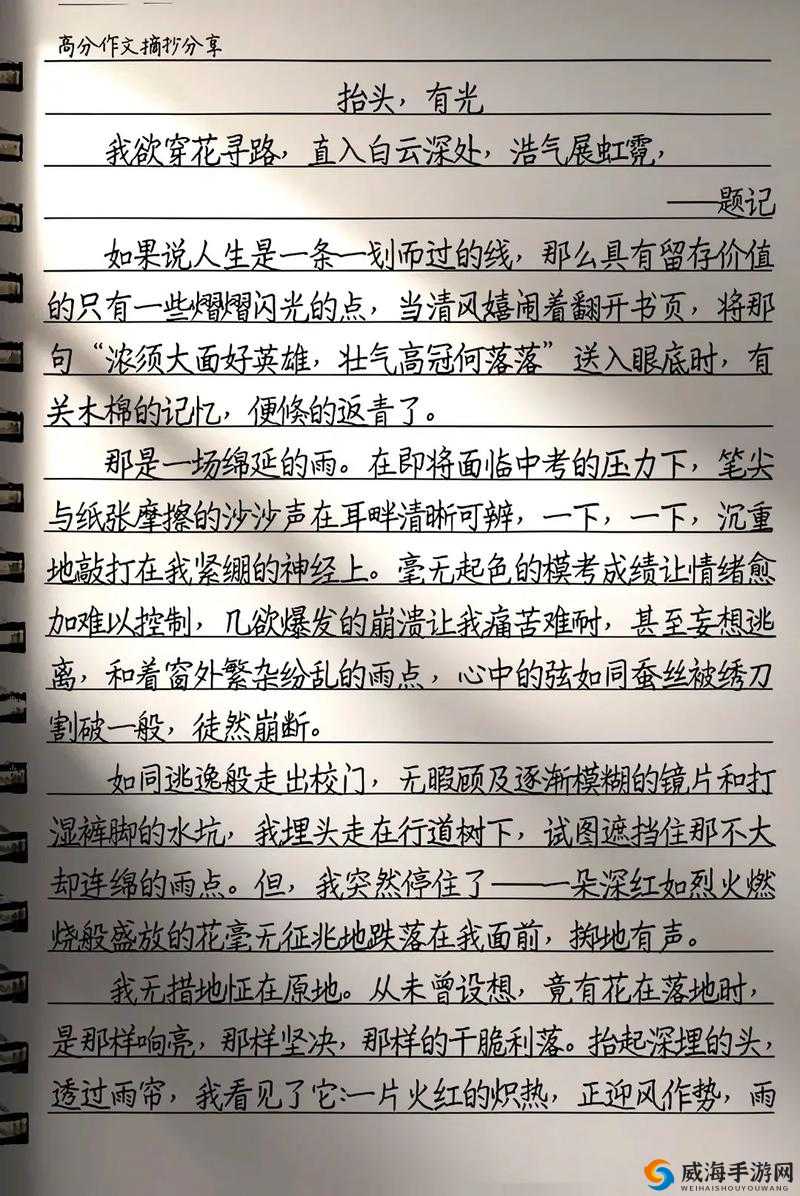 高分作文摘抄分享
抬头，有光
我欲穿花寻路，直入白云深处，浩气展虹霓，
——题记
如果说人生是一条一划而过的线，那么具有留存价值
的只有一些熠熠闪光的点，当清风嬉闹着翻开书页，将那
句“浓须大面好英雄，壮气高冠何落落”送入眼底时，有
关木棉的记忆，便倏的返青了。
那是一场绵延的雨。在即将面临中考的压力下，笔尖
与纸张摩擦的沙沙声在耳畔清晰可辨，一下，一下，沉重
地敲打在我紧绷的神经上。毫无起色的模考成绩让情绪愈
加难以控制，几欲爆发的崩溃让我痛苦难耐，甚至妄想逃
离，和着窗外繁杂纷乱的雨点，心中的弦如同蚕丝被绣刀
割破一般，徒然崩断。
如同逃逸般走出校门，无暇顾及逐渐模糊的镜片和打
湿裤脚的水坑，我埋头走在行道树下，试图遮挡住那不大
却连绵的雨点。但，我突然停住了——一朵深红如烈火燃
烧般盛放的花毫无征兆地跌落在我面前，掷地有声。
我无措地怔在原地。从未曾设想，竟有花在落地时，
是那样响亮，那样坚决，那样的干脆利落。抬起深埋的头，
透过雨帘，我看见了它:一片火红的炽热，正迎风作势，雨
威海手游网
WEIHAISHOUYOUWANG